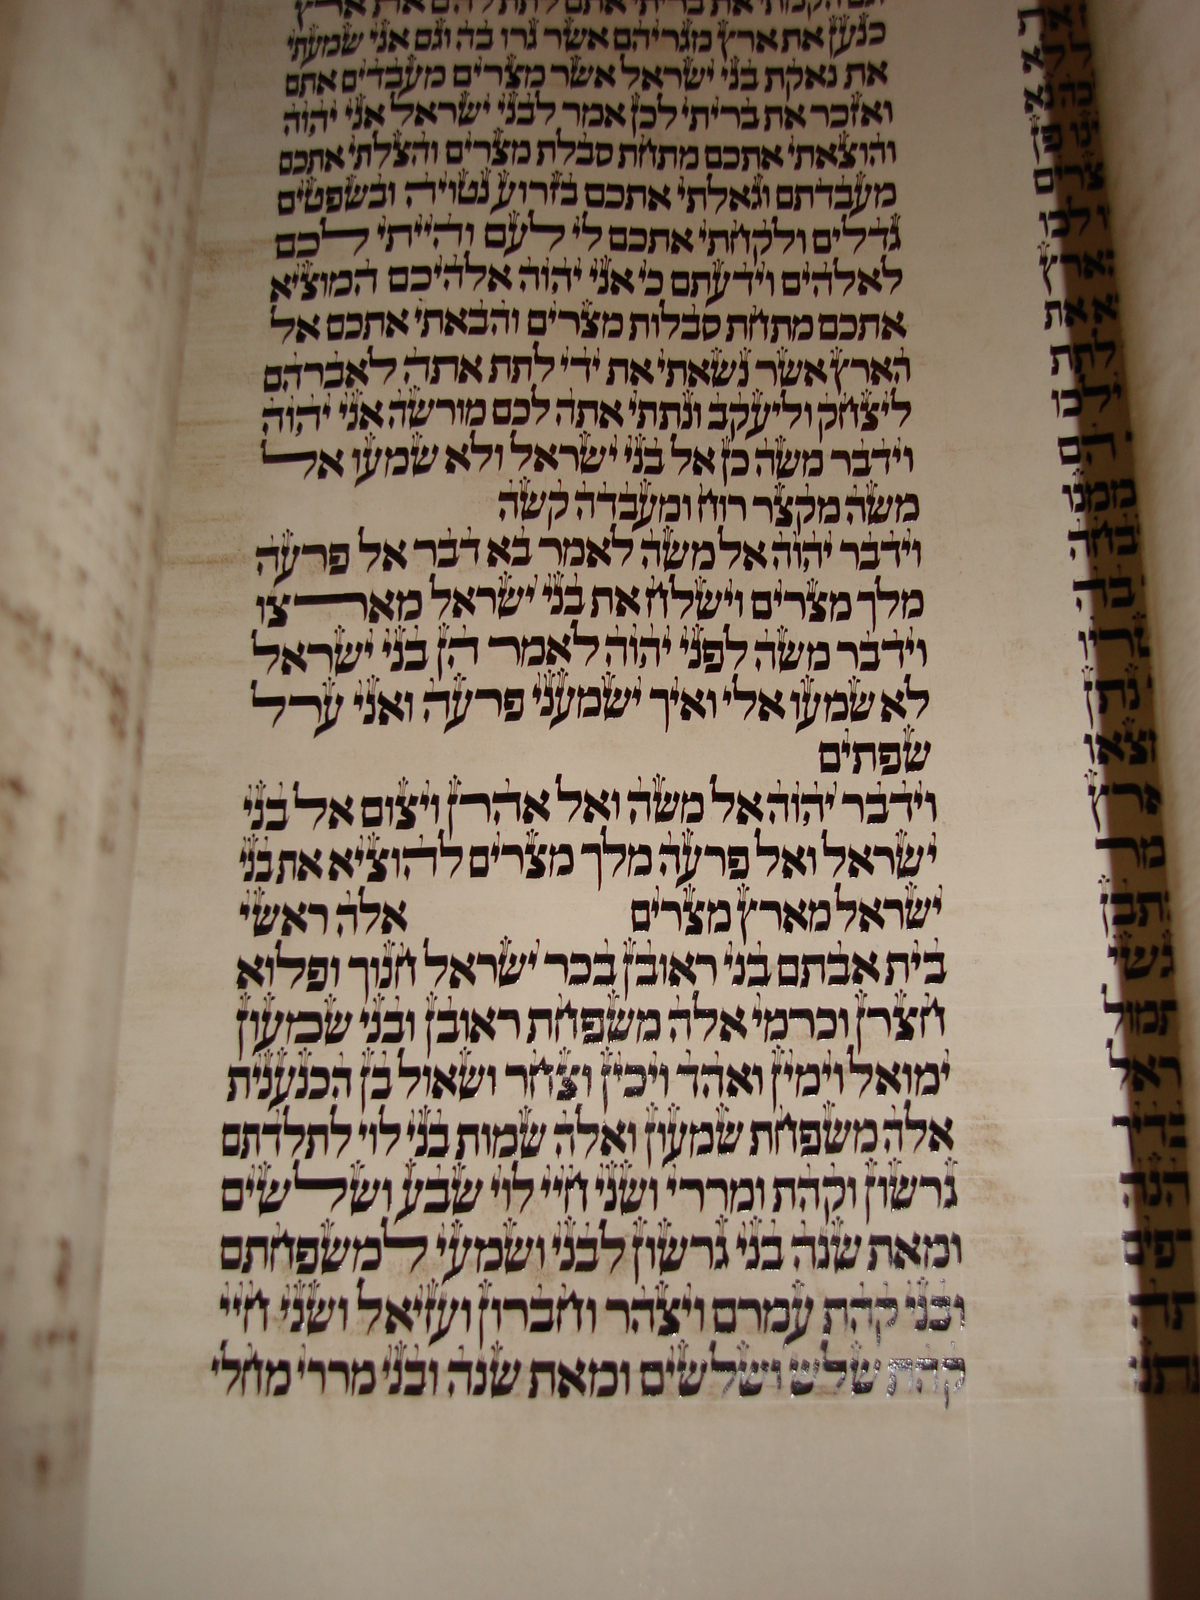 וגם הקמתי את בריתי אתם לתת להם את ארץ
כנען את ארץ מגריהם אשר גרו בה וגם אני שמעתי
את נאקת בני ישראל אשר מצרים מעבדים אתם
ואזכר את בריתי לכן אמר לבני ישראל אני יהוה
והוצאתי אתכם מתחת סבלת מצרים והצלתי אתכם
מעבדתם וגאלתי אתכם בזרוע נטויה ובשפטים
גדלים ולקחתי אתכם לי לעם והייתי לכם
לאלהים וידעתם כי אני יהוה אלהיכם המוציא
אתכם מתחת סבלות מצרים והבאתי אתכם אל
הארץ אשר נשאתי את ידי לתת אתה לאברהם
ליצחק וליעקב ונתתי אתה לכם מורשה אני יהוה
וידבר משה כן אל בני ישראל ולא שמעו אל
משה מקצר רוח ומעבדה קשה
וידבר יהוה אל משה לאמר בא דבר אל פרעה
מלך מצרים וישלח את בני ישראל מארצו
וידבר משה לפני יהוה לאמר הן בני ישראל
לא שמעו אלי ואיך ישמעני פרעה ואני ערל
שפתים
וידבר יהוה אל משה ואל אהרן ויצום אל בני
ישראל ואל פרעה מלך מצרים להוציא את בני
ישראל מארץ מצרים אלה ראשי
בית אבתם בני ראובן בכר ישראל חנוך ופלוא
חצרן וכרמי אלה משפחת ראובן ובני שמעון
ימואל וימין ואהד ויכין וצחר ושאול בן הכנענית
אלה משפחת שמעון ואלה שמות בני לוי לתלדתם
גרשון וקהת ומררי ושני חיי לוי שבע ושלשים
ומאת שנה בני גרשון לבני ושמעי למשפחתם
ובני קהת עמרם ויצהר וחברון ועזיאל ושני חיי
קהת שלש ושלשים ומאת שנה ובני מררי מחלי